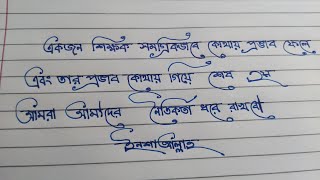 একজন শিক্ষক সমগ্রিকভাবে কোথায় প্রভাব ফেলে
এবং তার প্রভাব কোথায় গিয়ে শেষ হয়
আমরা আমাদের নৈতিকতা ধরে রাখবো
ইনশাআল্লাহ